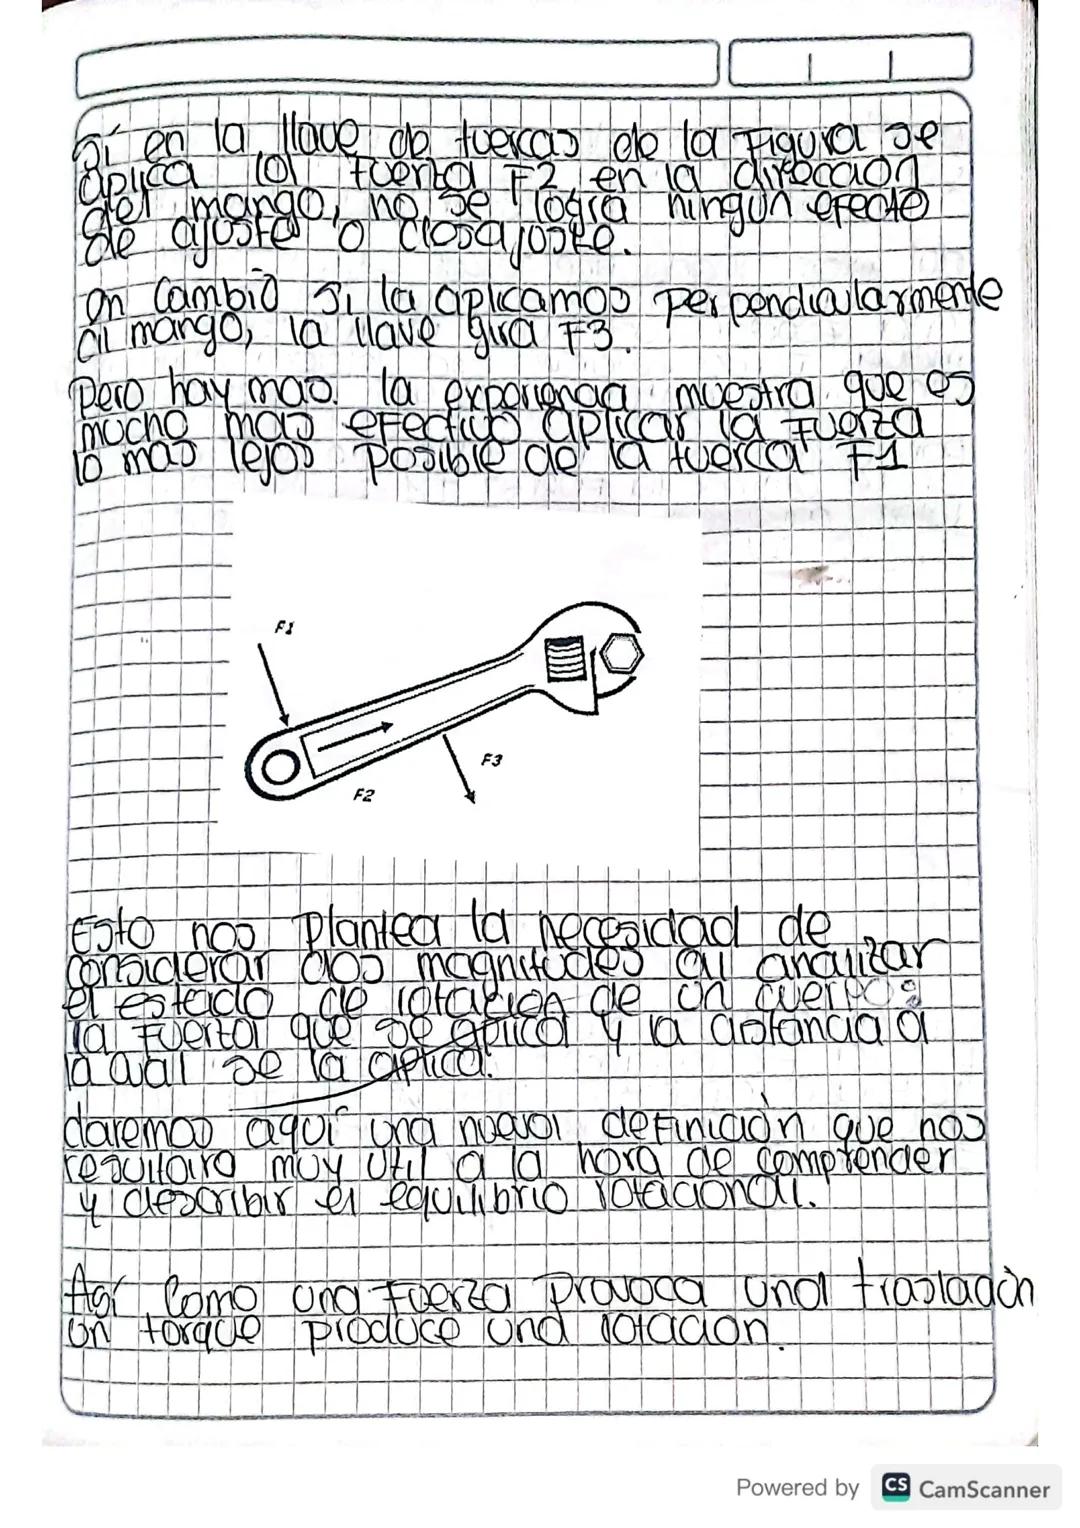 Si en la llave de tuercas de la Figura se
aplica la Fuerza F2, en la dirección
del mango, no se logra ningun efecto
de ajuste o desajuste.
On cambio si la aplicamos perpendicularmente
al mango, la llave gira F3.
Pero hay mas. la experiencia muestra que es
mucho mas efectivo aplicar la Fuerza
lo mas lejos posible de la tuerca F1
F1
F3
F2
Esto nos Plantea la necesidad de
considerar dos magnitudes al analizar
el estado de rotación de un cuerpo:
la Fuerza que se aplica y la distancia a
la cual se la aplica.
daremos aquí una nueva definición que nos
resultara muy útil a la hora de comprender
y describir el equilibrio rotacional.
Así como una Fuerza Provoca una traslación
un torque produce una rotacion.
Powered by CS CamScanner